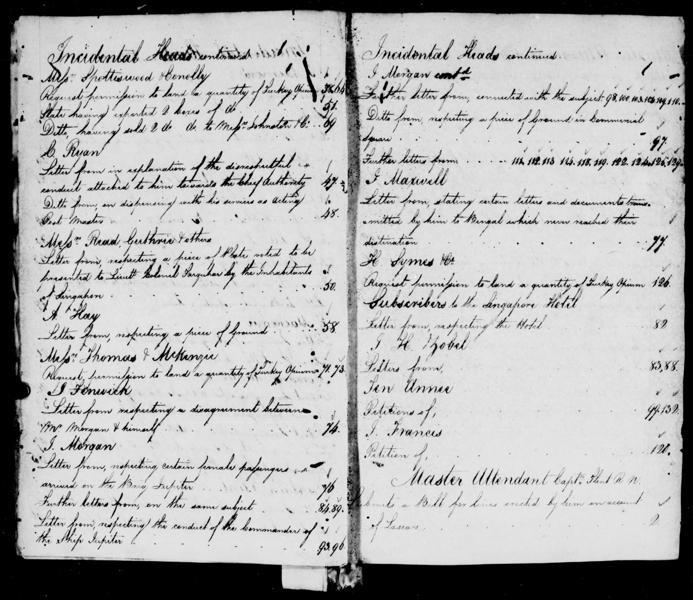 Incidental Heads continued
Messrs. Spottiswood & Conolly
Request permission to land a quantity of Turkey Opium
State having exported 2 boxes of do
Ditto having sold 2 do do to Messrs. Johnston & Co. 69
C. Ryan
Letter from in explanation of the disrespectful
conduct attached to him towards the Chief Authority 47.
Ditto from, on dispensing with his services as Acting
Post Master 48.
Messrs. Read, Guthrie & others
Letter from, respecting a piece of Plate voted to be
presented to Lieutt Colonel Farquhar by the Inhabitants
of Singapore 50.
A. Hay
Letter from, respecting a piece of Ground 58
Messrs. Thomas & McKenzie
Request permission to land a quantity of Turkey Opium 71, 73.
J. Fenwick
Letter from respecting a disagreement between
Mr. Morgan & himself 74.
J. Morgan
Letter from, respecting certain female passengers
arrived on the Brig Jupiter 76
Further letters from, on the same subject 84, 89.
Letter from, respecting the conduct of the Commander of
the Ship Jupiter 93, 96
Incidental Heads continued
J. Morgan contd
Further letter from, connected with the subject
Ditto from, respecting a piece of Ground in Commercial
Square 97.
Further letters from
J. Maxwell
Letter from, stating certain letters and documents trans
mitted by him to Bengal which never reached their
distination 77.
H. Symes & Co
Request permission to land a quantity of Turkey Opium 126.
Subscribers to the Singapore Hotel
Letter from, respecting the Hotel 82.
J. H. Zobel
Letters from, 83, 88.
Petitions of, 99, 132.
J. Francis
Petition of, 120.
Master Attendant Captn. Flint R. N.
Submits a Bill for Lines erected by him on account
of Lascars 2.